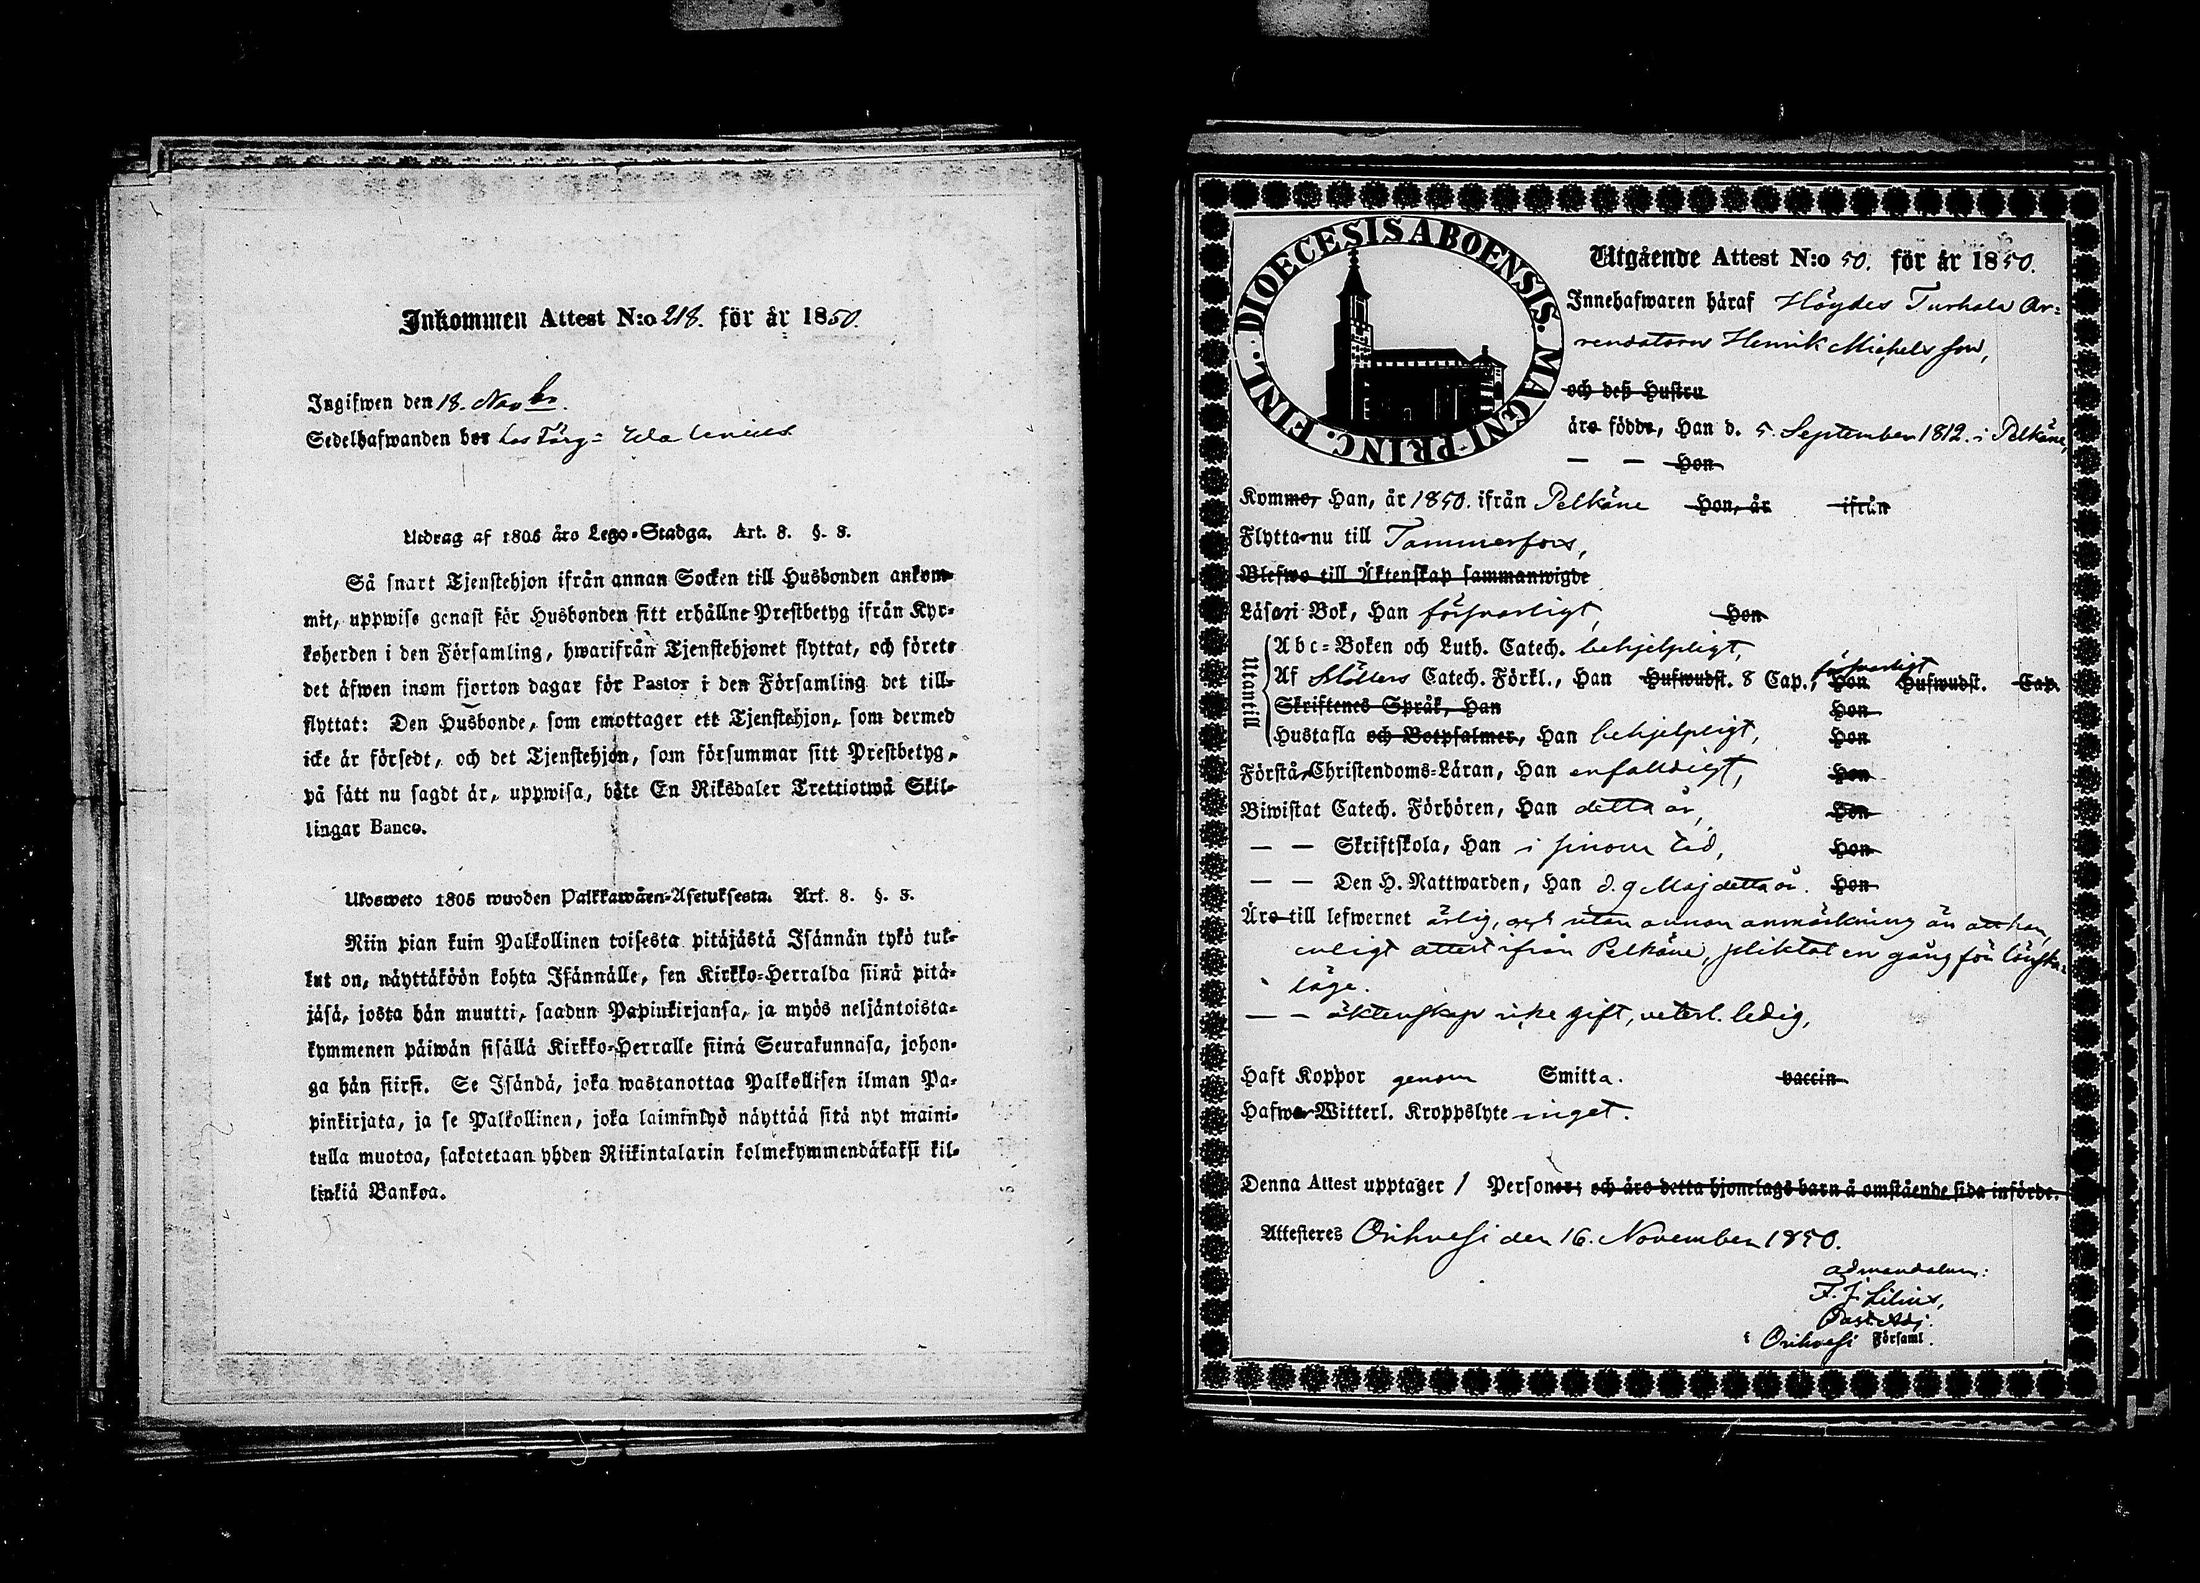 Inkommen Attest N:o 218. för år 1850.
Ingifwen den 18. Novbr.
Sedelhafwanden bor hos Färg=
Utdrag af 1805 års Lego-Stadga. Art. 8. §. 8.
Så snart Tjenstehjon ifrån annan Socken till Husbonden ankom-
mit, uppwise genast för Husbonden sitt erhållne Prestbetyg ifrån Kyr-
koherden i den Församling, hwarifrån Tjenstehjonet flyttat, och förete
det äfwen inom fjorton dagar för Pastor i den Församling det till-
flyttat: Den Husbonde, som emottager ett Tjenstehjon, som dermed
icke är försedt, och det Tjenstehjon, som försummar sitt Prestbetyg,
på sätt nu sagdt är, uppwisa, böte En Riksdaler Trettiotwå Skil-
lingar Banco.
Ulosweto 1805 wuoden Palkkawäen-Asetuksesta. Art. 8. §. 8.
Niin pian kuin Palkollinen toisesta pitäjästä Isännän tykö tul-
lut on, näyttäköön kohta Isännälle, sen Kirkko-Herralda siinä pitä-
jäsä, josta hän muutti, saadun Papinkirjansa, ja myös neljäntoista-
kymmenen päiwän sisällä Kirkko-Herralle siinä Seurakunnasa, johon-
ga hän siirsi. Se Isändä, joka wastanottaa Palkollisen ilman Pa-
pinkirjata, ja se Palkollinen, joka laiminlyö näyttää sitä nyt maini-
tulla muotoa, sakotetaan yhden Riikintalarin kolmekymmendäkaksi kil-
linkiä Bankoa.
DIOECESIS ABOENSIS. MAGNI PRINC. FINL.
Utgående Attest N:o 50. för år 1850.
Innehafwaren häraf Höydes Turkala Ar=
rendatorn Henrik Michelsson,
och deß Hustru
äro födde, Han d. 5. September 1812. i Pelkäne,
— — Hon
Kommo, Han, år 1850. ifrån Pelkäne Hon, år ifrån
Flytta nu till Tammerfors,
Blefwo till Äktenskap sammanwigde
Läsa i Bok, Han försvarligt, Hon
Utantill
Abc-Boken och Luth. Catech. behjelpligt,
Af Möllers Catech. Förkl., Han Hufwudst. 8 Cap., försvarligt Hon Hufwudst. Cap.
Skriftenes Språk, Han Hon
Hustafla och Botpsalmer, Han behjelpligt, Hon
Förstå Christendoms-Läran, Han enfaldigt, Hon
Biwistat Catech. Förhören, Han detta år, Hon
— — Skriftskola, Han i sinom tid, Hon
— — Den H. Nattwarden, Han d. 9 Maj detta år. Hon
Äro till lefwernet ärlig, och utan annan anmärkning än att han,
enligt attest ifrån Pelkäne, pliktat en gång för lönska=
läge.
— — äktenskap icke gift, veterl. ledig,
Haft Koppor genom Smitta. vaccin
Hafwa Witterl. Kroppslyte inget.
Denna Attest upptager 1 Personer; och äro detta hjonelags barn å omstående sida införde.
Attesteres Orihvesi den 16. November 1850.
ad mandatum:
F. J. Lilius,
Past. Adj.
i Orihvesi Församl.